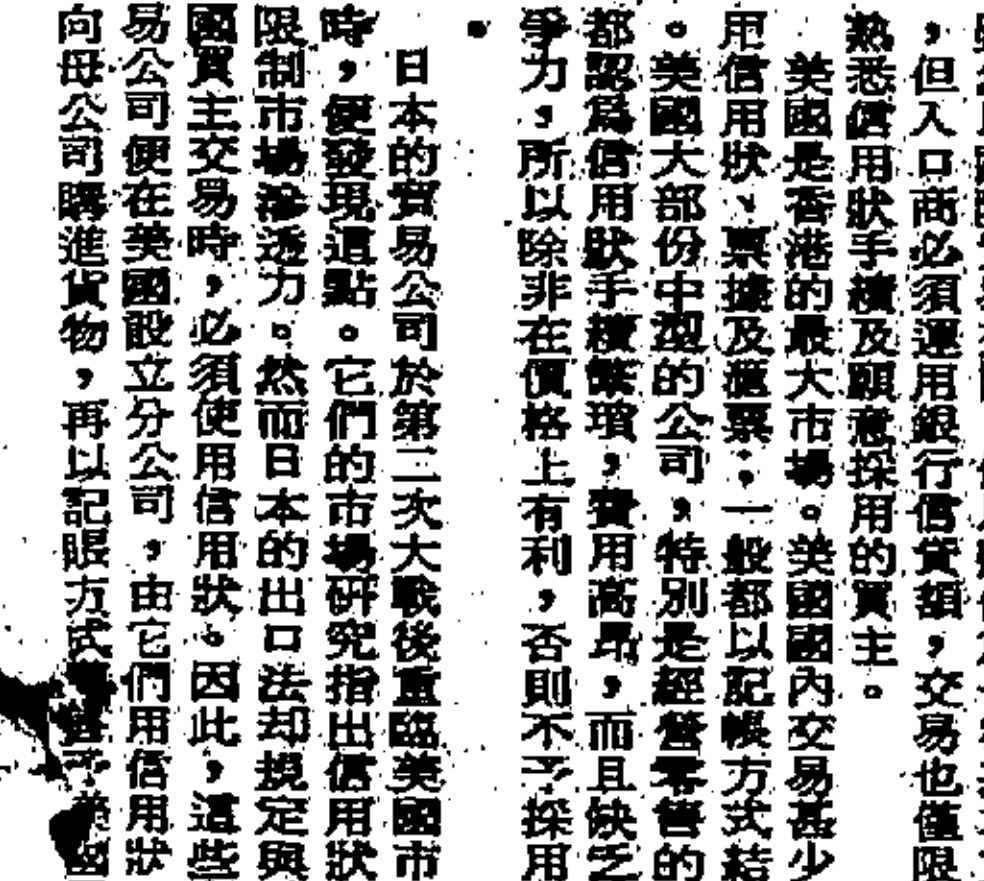 ，但入口商必須運用銀行信貸額，交易也僅限
熟悉信用狀手續及願意採用的買主。
美國是香港的最大市場。美國國內交易甚少
用信用狀、票據及滙票；一般都以記帳方式結
。美國大部份中型的公司，特別是經營零售的
都認爲信用狀手續繁瑣，費用高昂，而且缺乏
爭力，所以除非在價格上有利，否則不予採用
。
日本的貿易公司於第二次大戰後重臨美國市
時，便發現這點。它們的市場研究指出信用狀
限制市場滲透力。然而日本的出口法却規定與
國買主交易時，必須使用信用狀。因此，這些
易公司便在美國設立分公司，由它們用信用狀
向母公司購進貨物，再以記賬方式售予美國